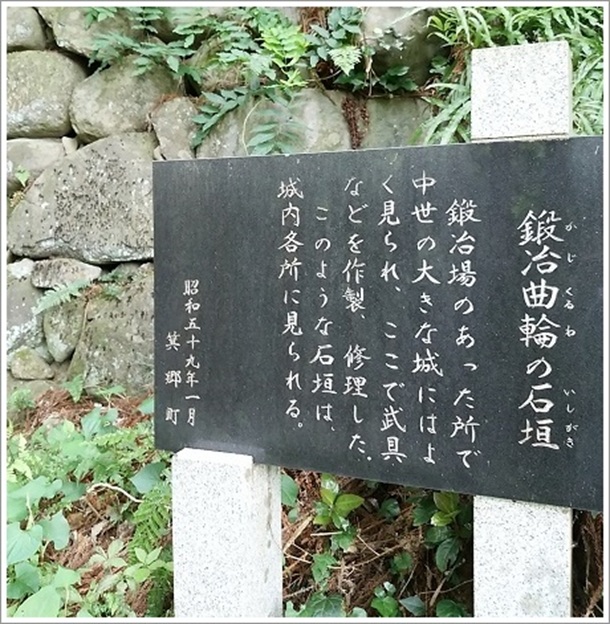 鍛冶曲輪の石垣
かじくるわ
いしがき
鍛冶場のあった所で
中世の大きな城にはよ
く見られ、ここで武具
などを作製、修理した。
このような石垣は、
城内各所に見られる。
昭和五十九年一月
箕郷町